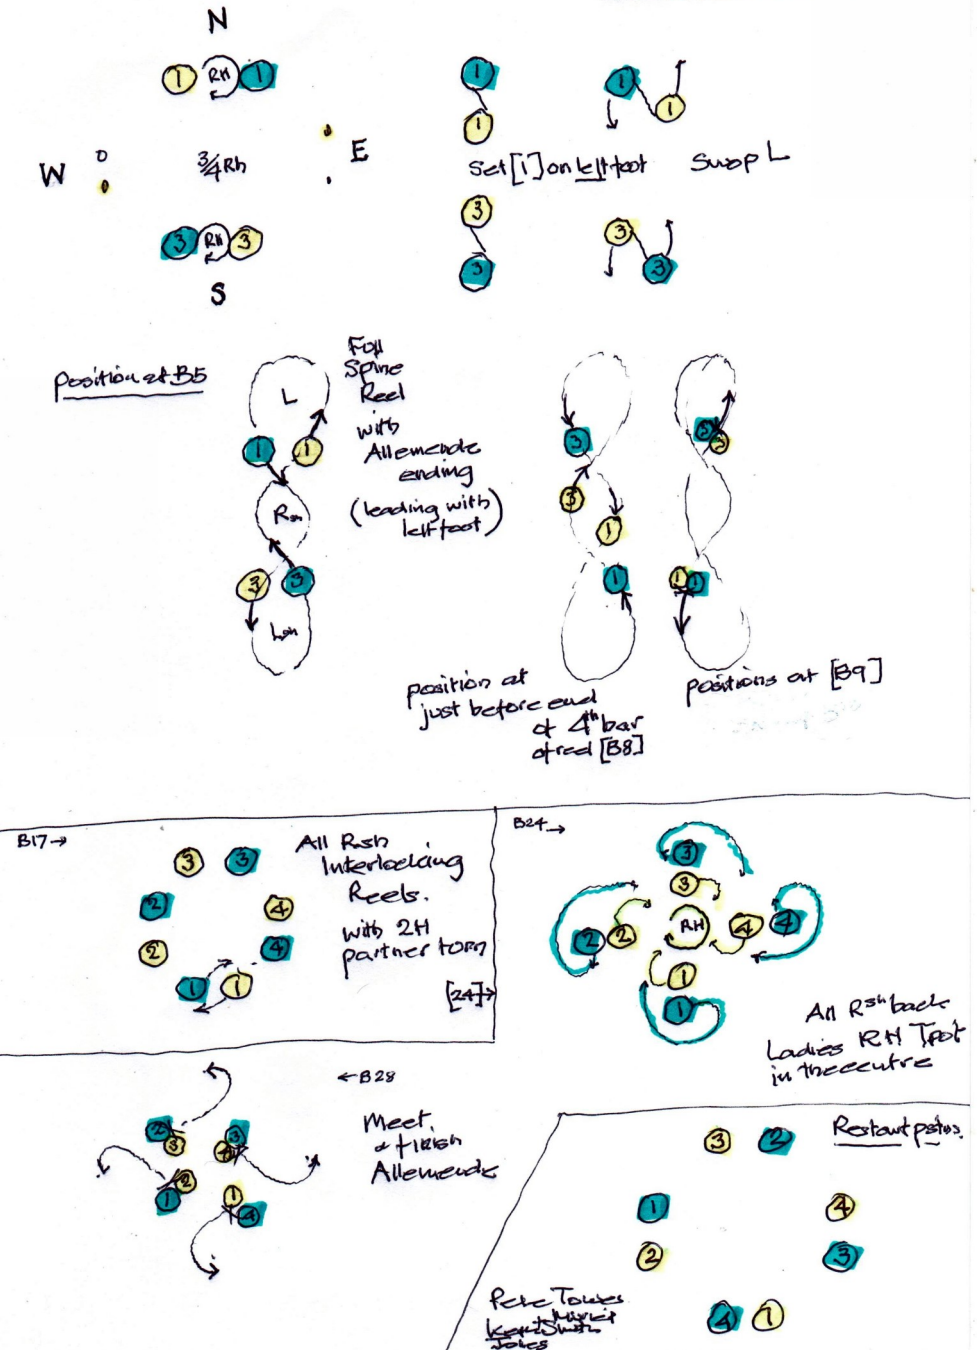 N
1 RH 1
W
3/4 Rh
E
3 RH 3
S
1
1
Set [1] on left foot
3
3
1
1
Swop L
3
3
Position at B5
L
1
1
Rsh
3
3
Lsh
Full
Spine
Reel
with
Allemende
ending
(leading with
left foot)
3
3
1
1
position at
just before end
of 4th bar
of reel [B8]
3 3
1 1
positions at [B9]
B17→
3 3
2 4
2 4
1 1
All Rsh
Interlocking
Reels.
with 2H
partner torn
[24]→
B24→
3
3
2 2 RH 4 4
1
1
All Rsh back
Ladies RH Tpot
in the centre
←B28
2 3
3 4
2
1
1
4
Meet
& finish
Allemende
Restart pstns.
3 2
1 4
2 3
4 1
Pete Towes
Smith